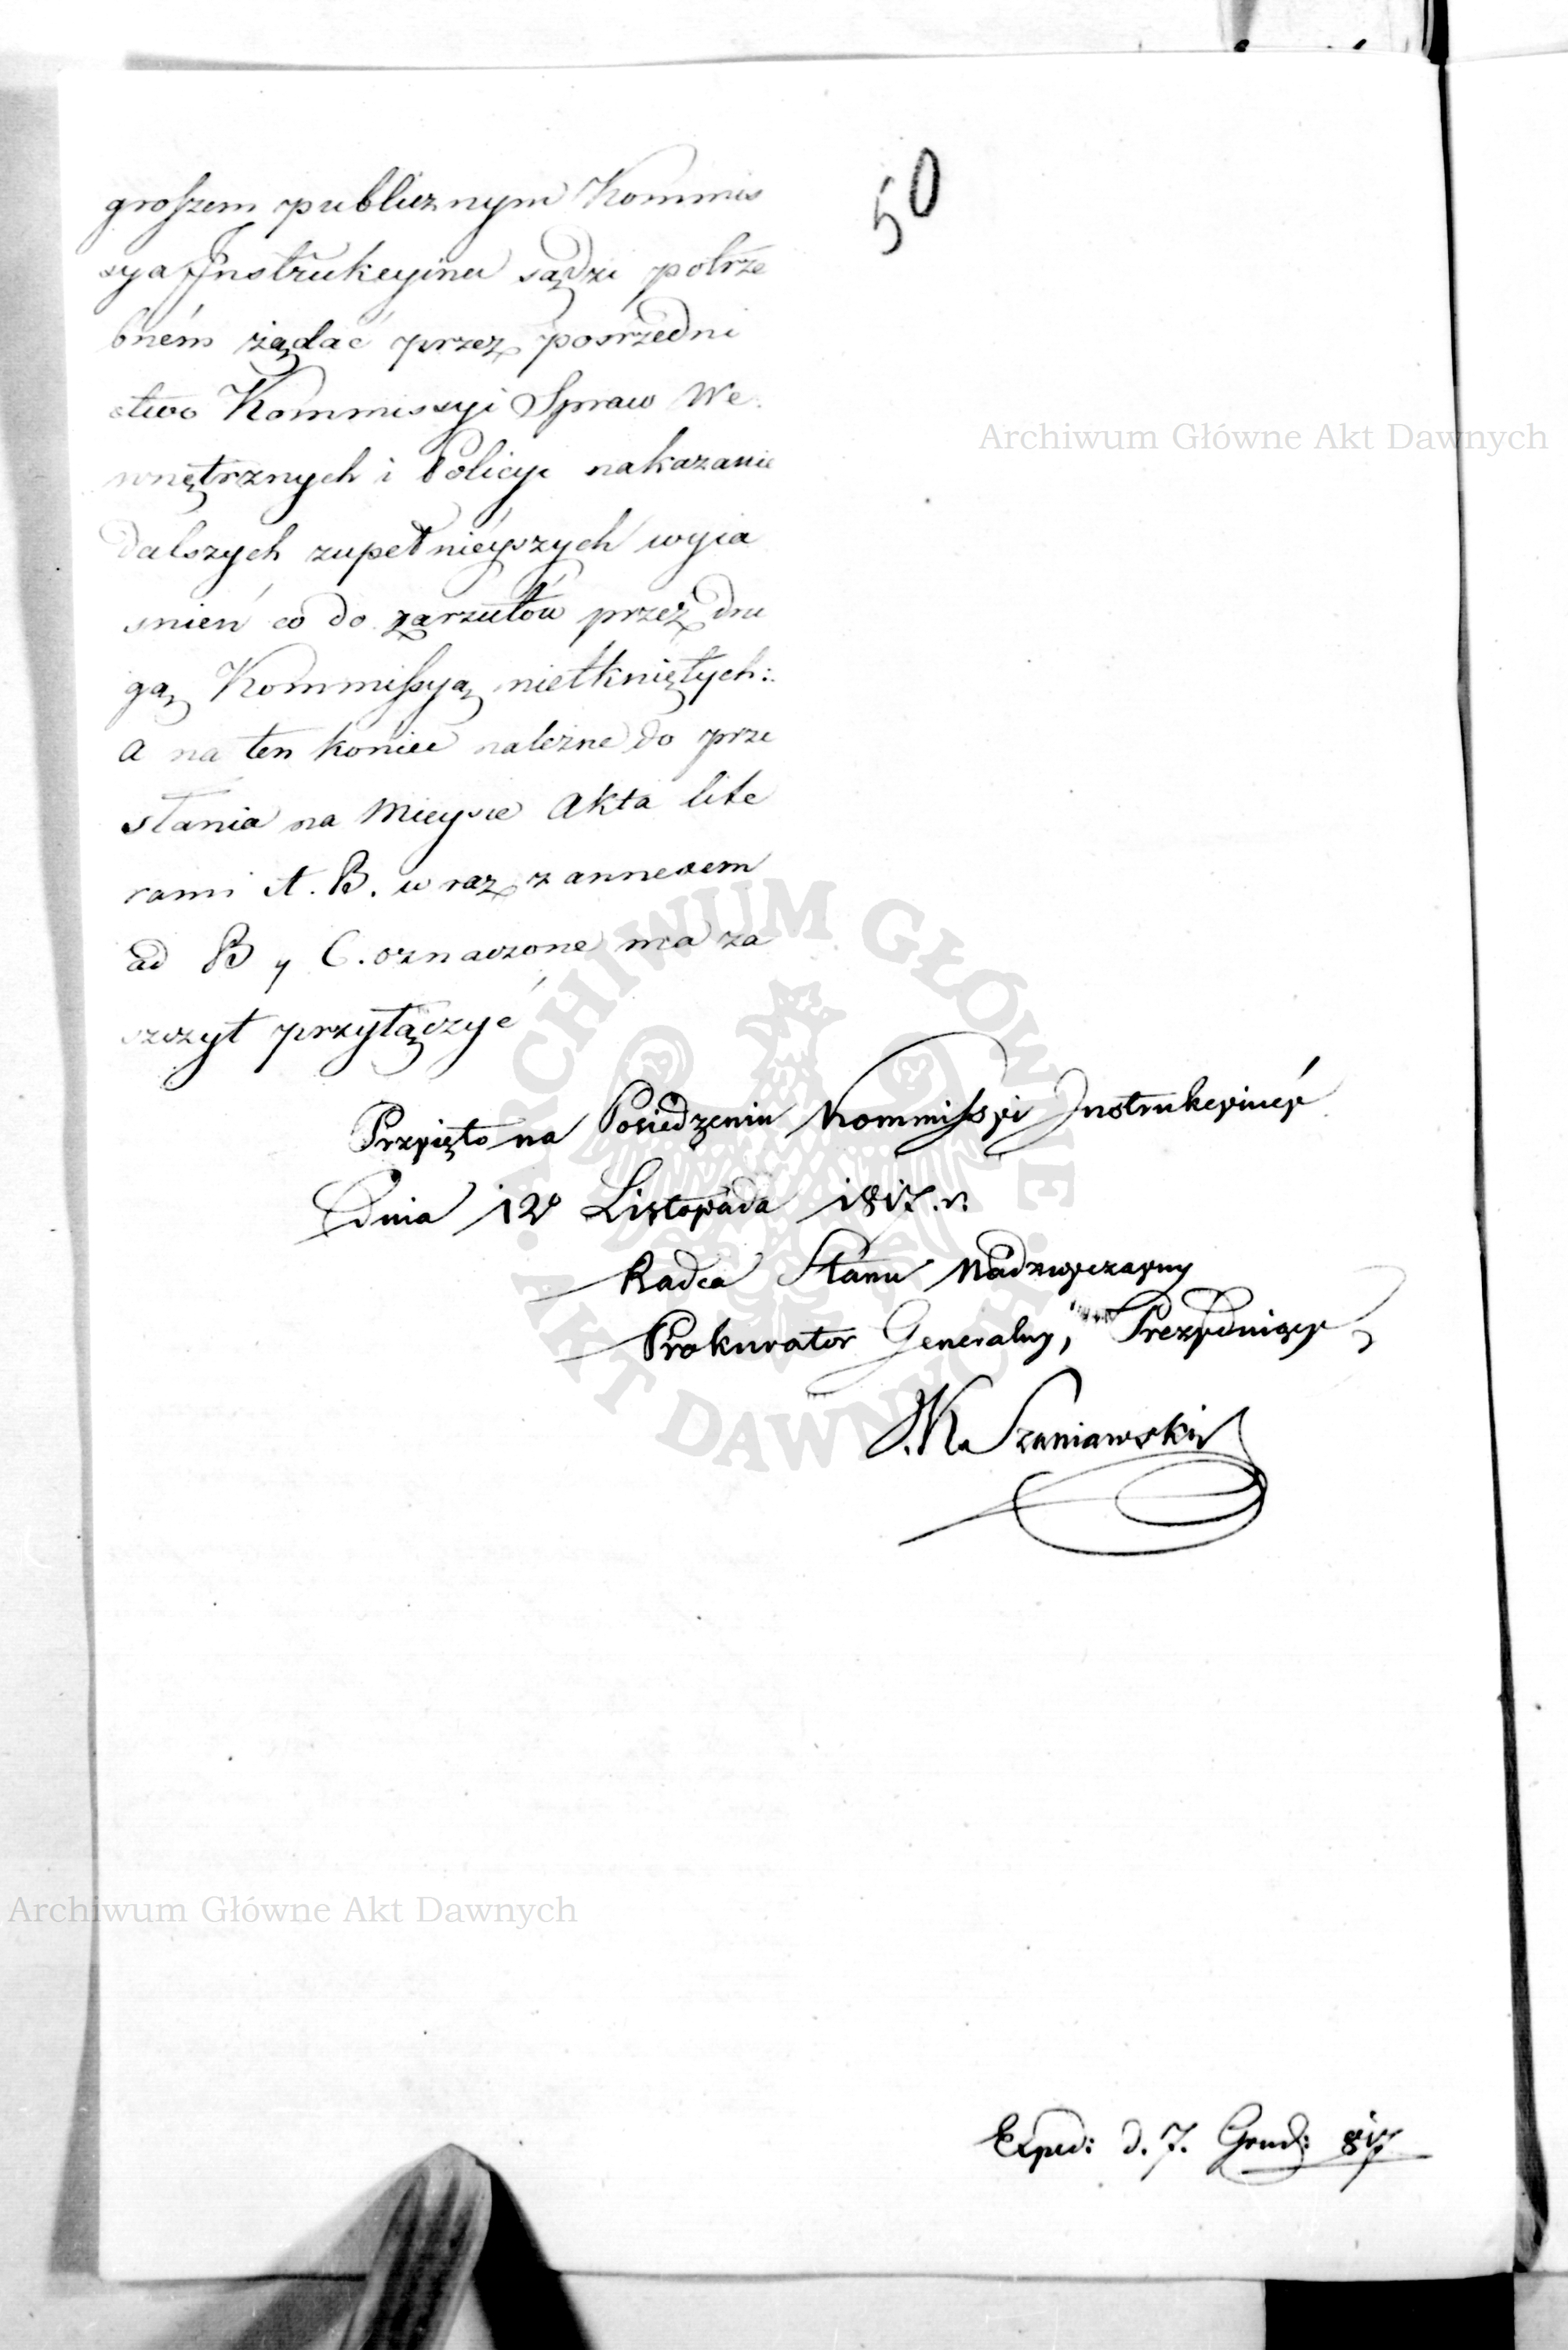 50
groszem publicznym Kommis
sya Instrukcyina sądzi potrze
bném żądać przez posrzedni
ctwo Kommissyi Spraw We
wnętrznych i Policyi nakazanie
dalszych zupełniéyszych wyia
snień co do zarzutów przez dru
gą Kommissyą nietkniętych:
a na ten koniec należne do prze
słania na Mieysce Akta lite
rami A. B. wraz z annexem
ad B y C. oznaczone ma za
szczyt przyłączyć
Przyięto na Posiedzeniu Kommissyi Instrukcyinéy
Dnia 12 Listopada 1817. r.
Radca Stanu Nadzwyczayny
Prokurator Generalny, Prezyduiący
J. K. Szaniawski
Exped: d. 7. Grud: 817
Archiwum Główne Akt Dawnych
Archiwum Główne Akt Dawnych
ARCHIWUM GŁÓWNE
AKT DAWNYCH